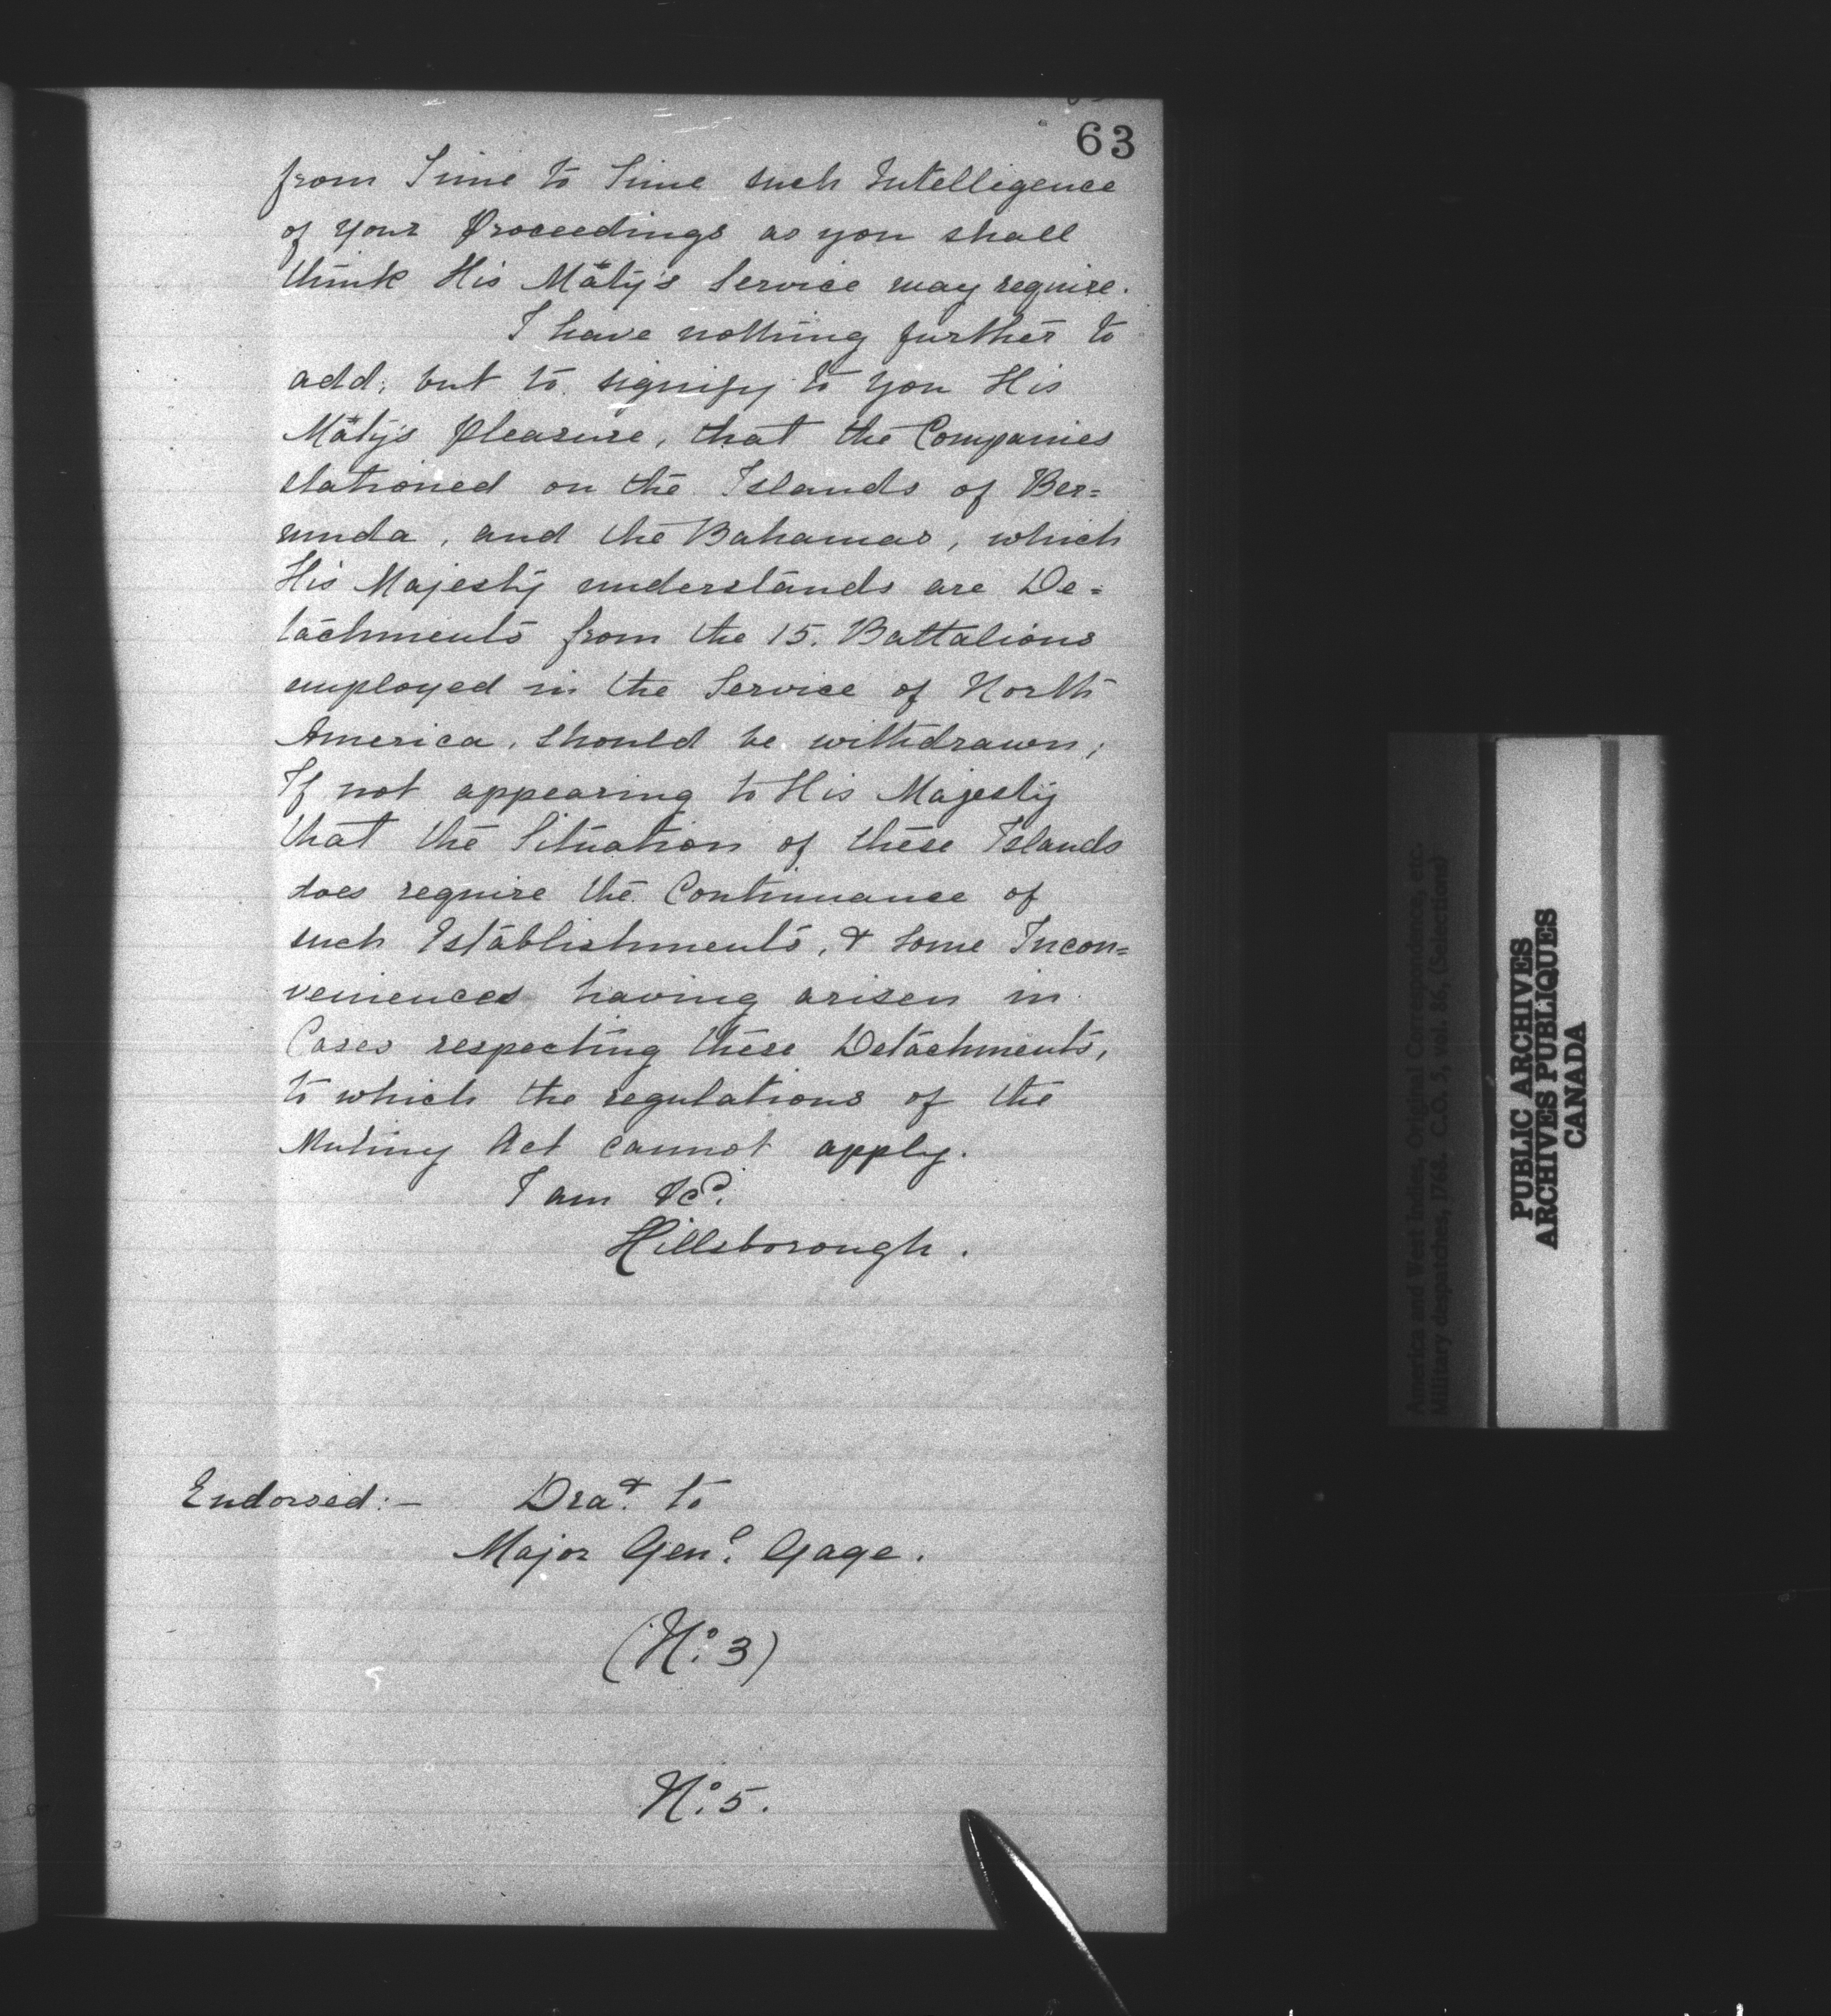 63
from Time to Time such Intelligence
of your Proceedings as you shall
think His Maty's Service may require.
I have nothing further to
add, but to signify to you His
Maty's Pleasure, that the Companies
stationed on the Islands of Ber=
muda, and the Bahamas, which
His Majesty understands are De=
tachments from the 15. Battalions
employed in the Service of North
America, should be withdrawn;
If not appearing to His Majesty
that the Situation of these Islands
does require the Continuance of
such Establishments, & some Incon=
veniences having arisen in
Cases respecting these Detachments,
to which the regulations of the
Mutiny Act cannot apply.
I am &c.
Hillsborough.
Endorsed:— Drat. to
Major Genl. Gage.
(No. 3)
No. 5.
America and West Indies, Original Correspondence, etc.
Military despatches, 1768. C.O. 5, vol. 86, (Selections)
PUBLIC ARCHIVES
ARCHIVES PUBLIQUES
CANADA